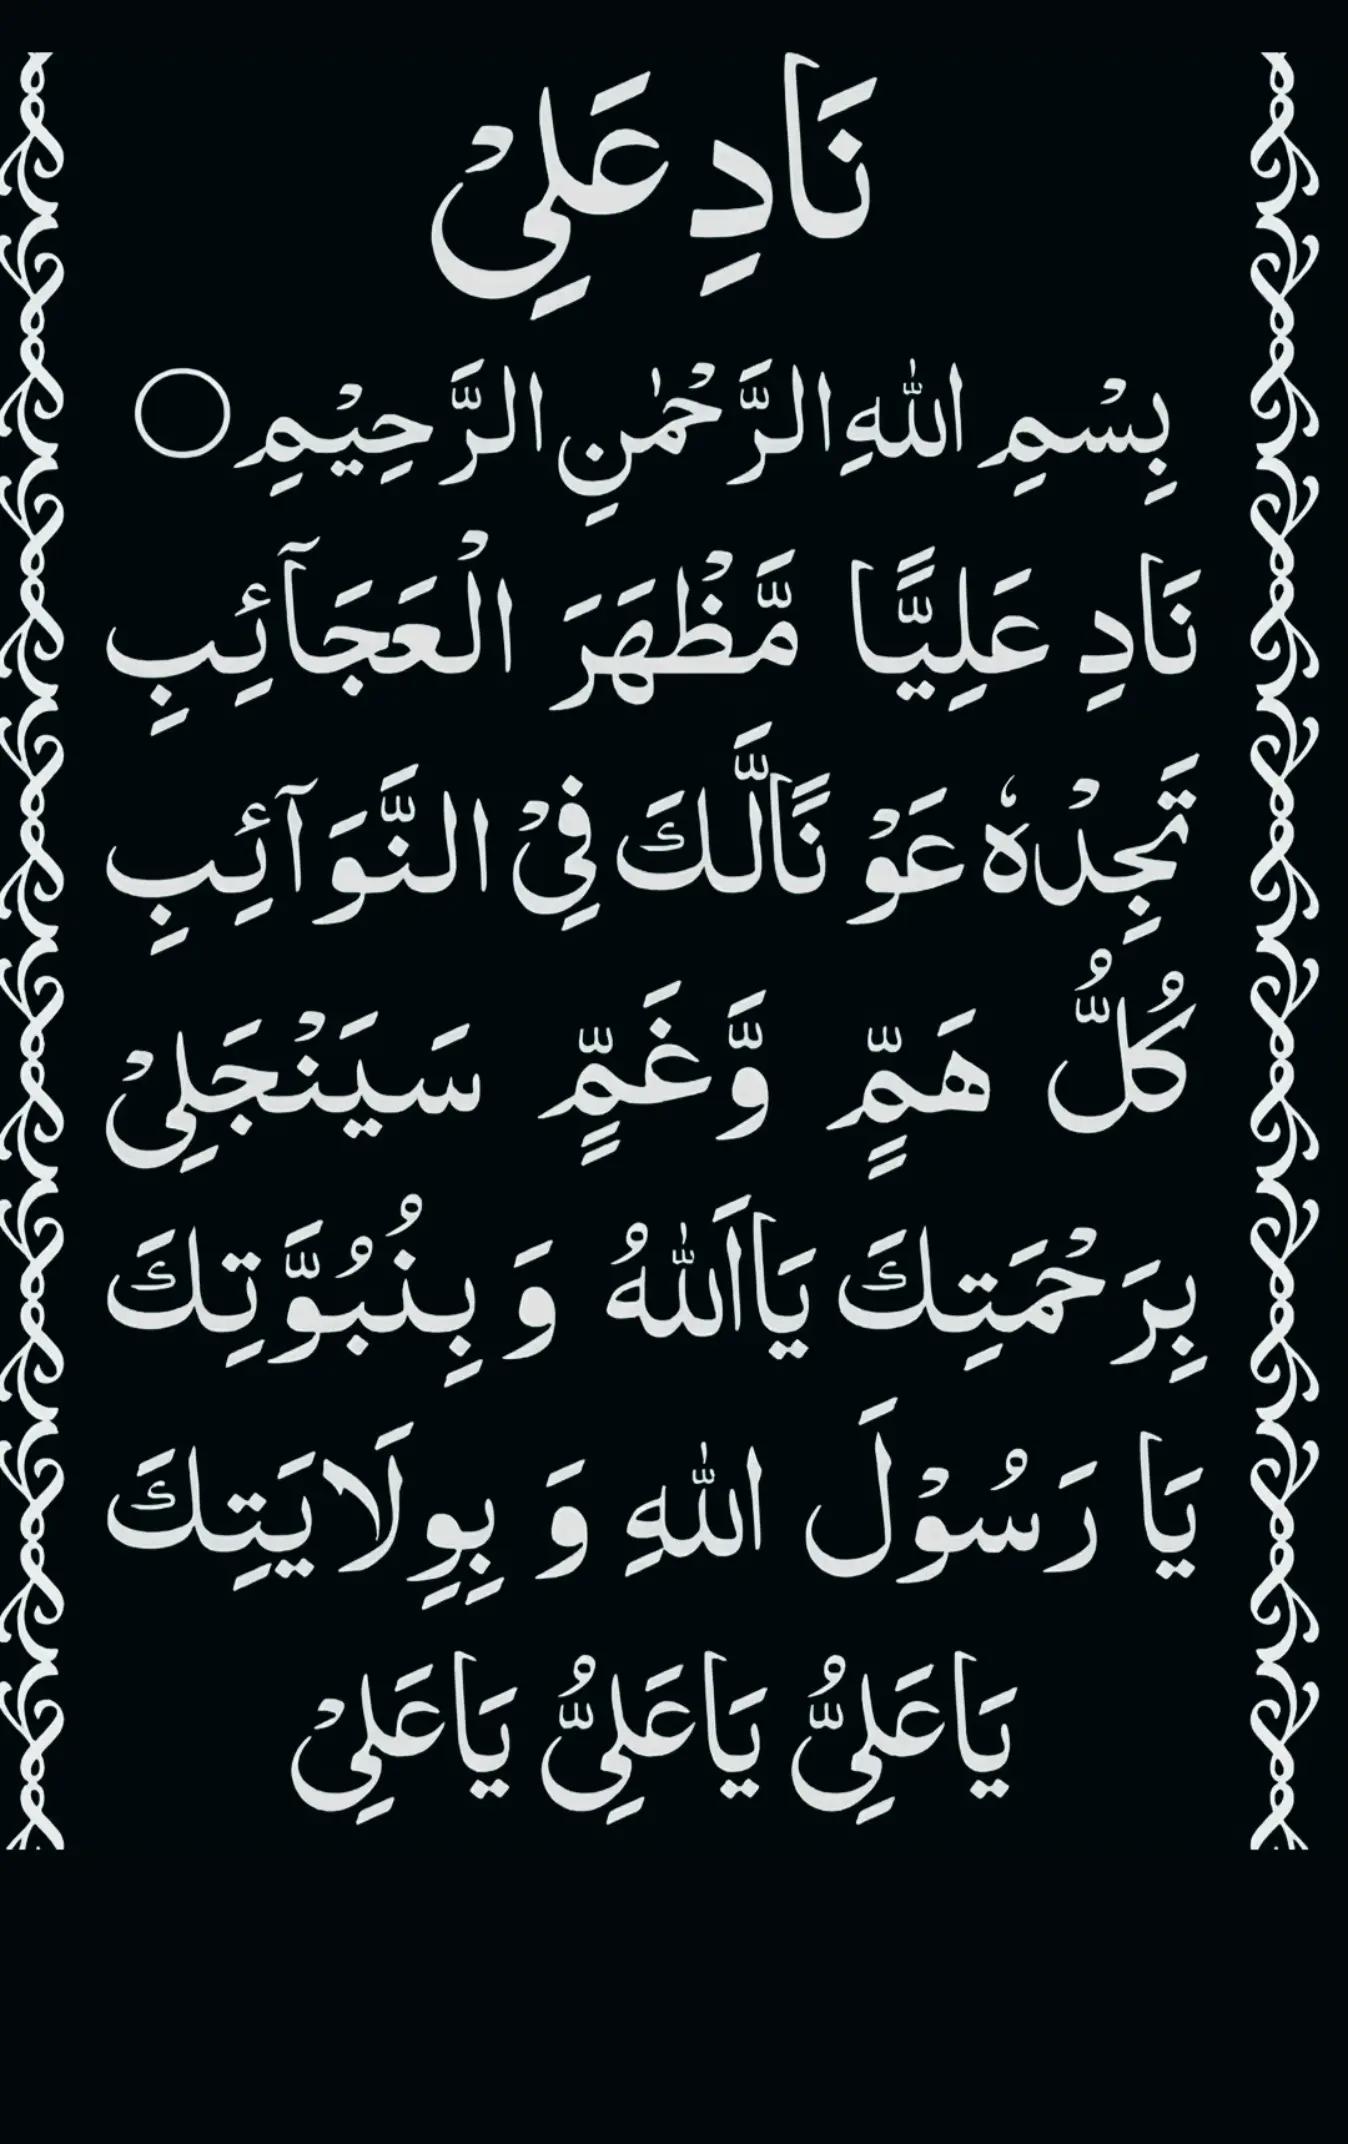 نَادِ عَلِيْ
بِسْمِ اللّٰهِ الرَّحْمٰنِ الرَّحِيْمِ ○
نَادِ عَلِيًّا مَّظْهَرَ الْعَجَآئِبِ
تَجِدْهُ عَوْ نًالَّكَ فِيْ النَّوَآئِبِ
كُلُّ هَمٍّ وَّغَمٍّ سَيَنْجَلِيْ
بِرَحْمَتِكَ يَااَللّٰهُ وَ بِنُبُوَّتِكَ
يَا رَسُوْلَ اللّٰهِ وَ بِوِلَايَتِكَ
يَاعَلِيُّ يَاعَلِيُّ يَاعَلِيْ